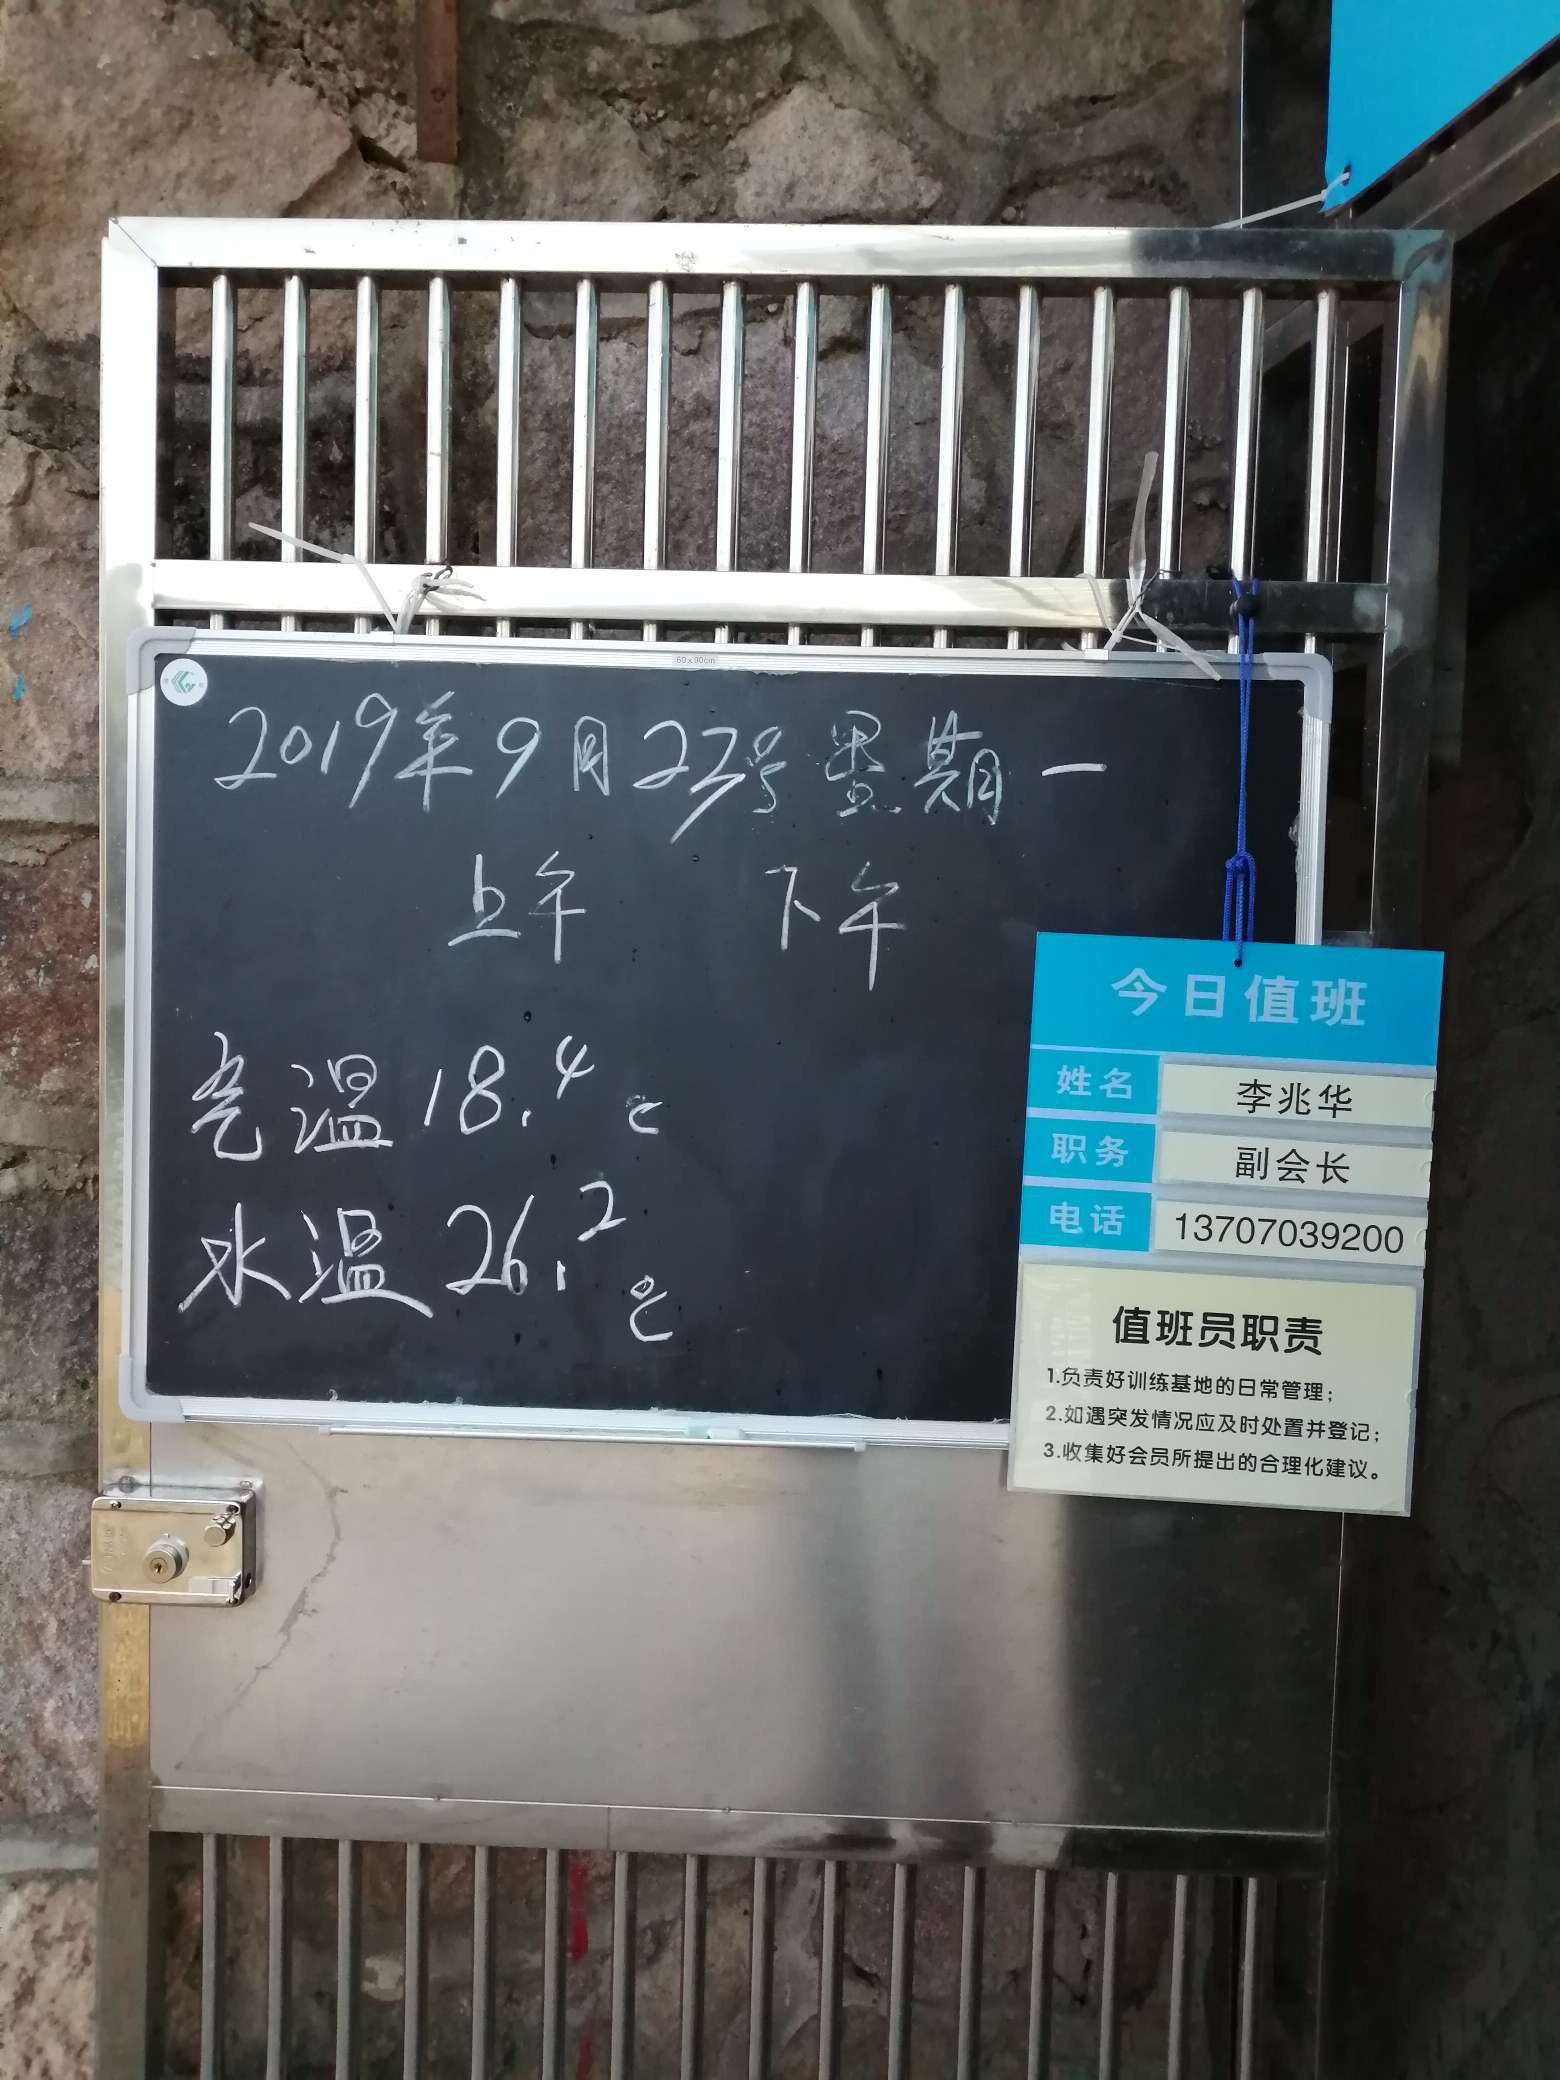 60x90cm
2019年9月23号星期一
上午 下午
气温18.4℃
水温26.2℃
今日值班
姓名 李兆华
职务 副会长
电话 13707039200
值班员职责
1.负责好训练基地的日常管理；
2.如遇突发情况应及时处置并登记；
3.收集好会员所提出的合理化建议。